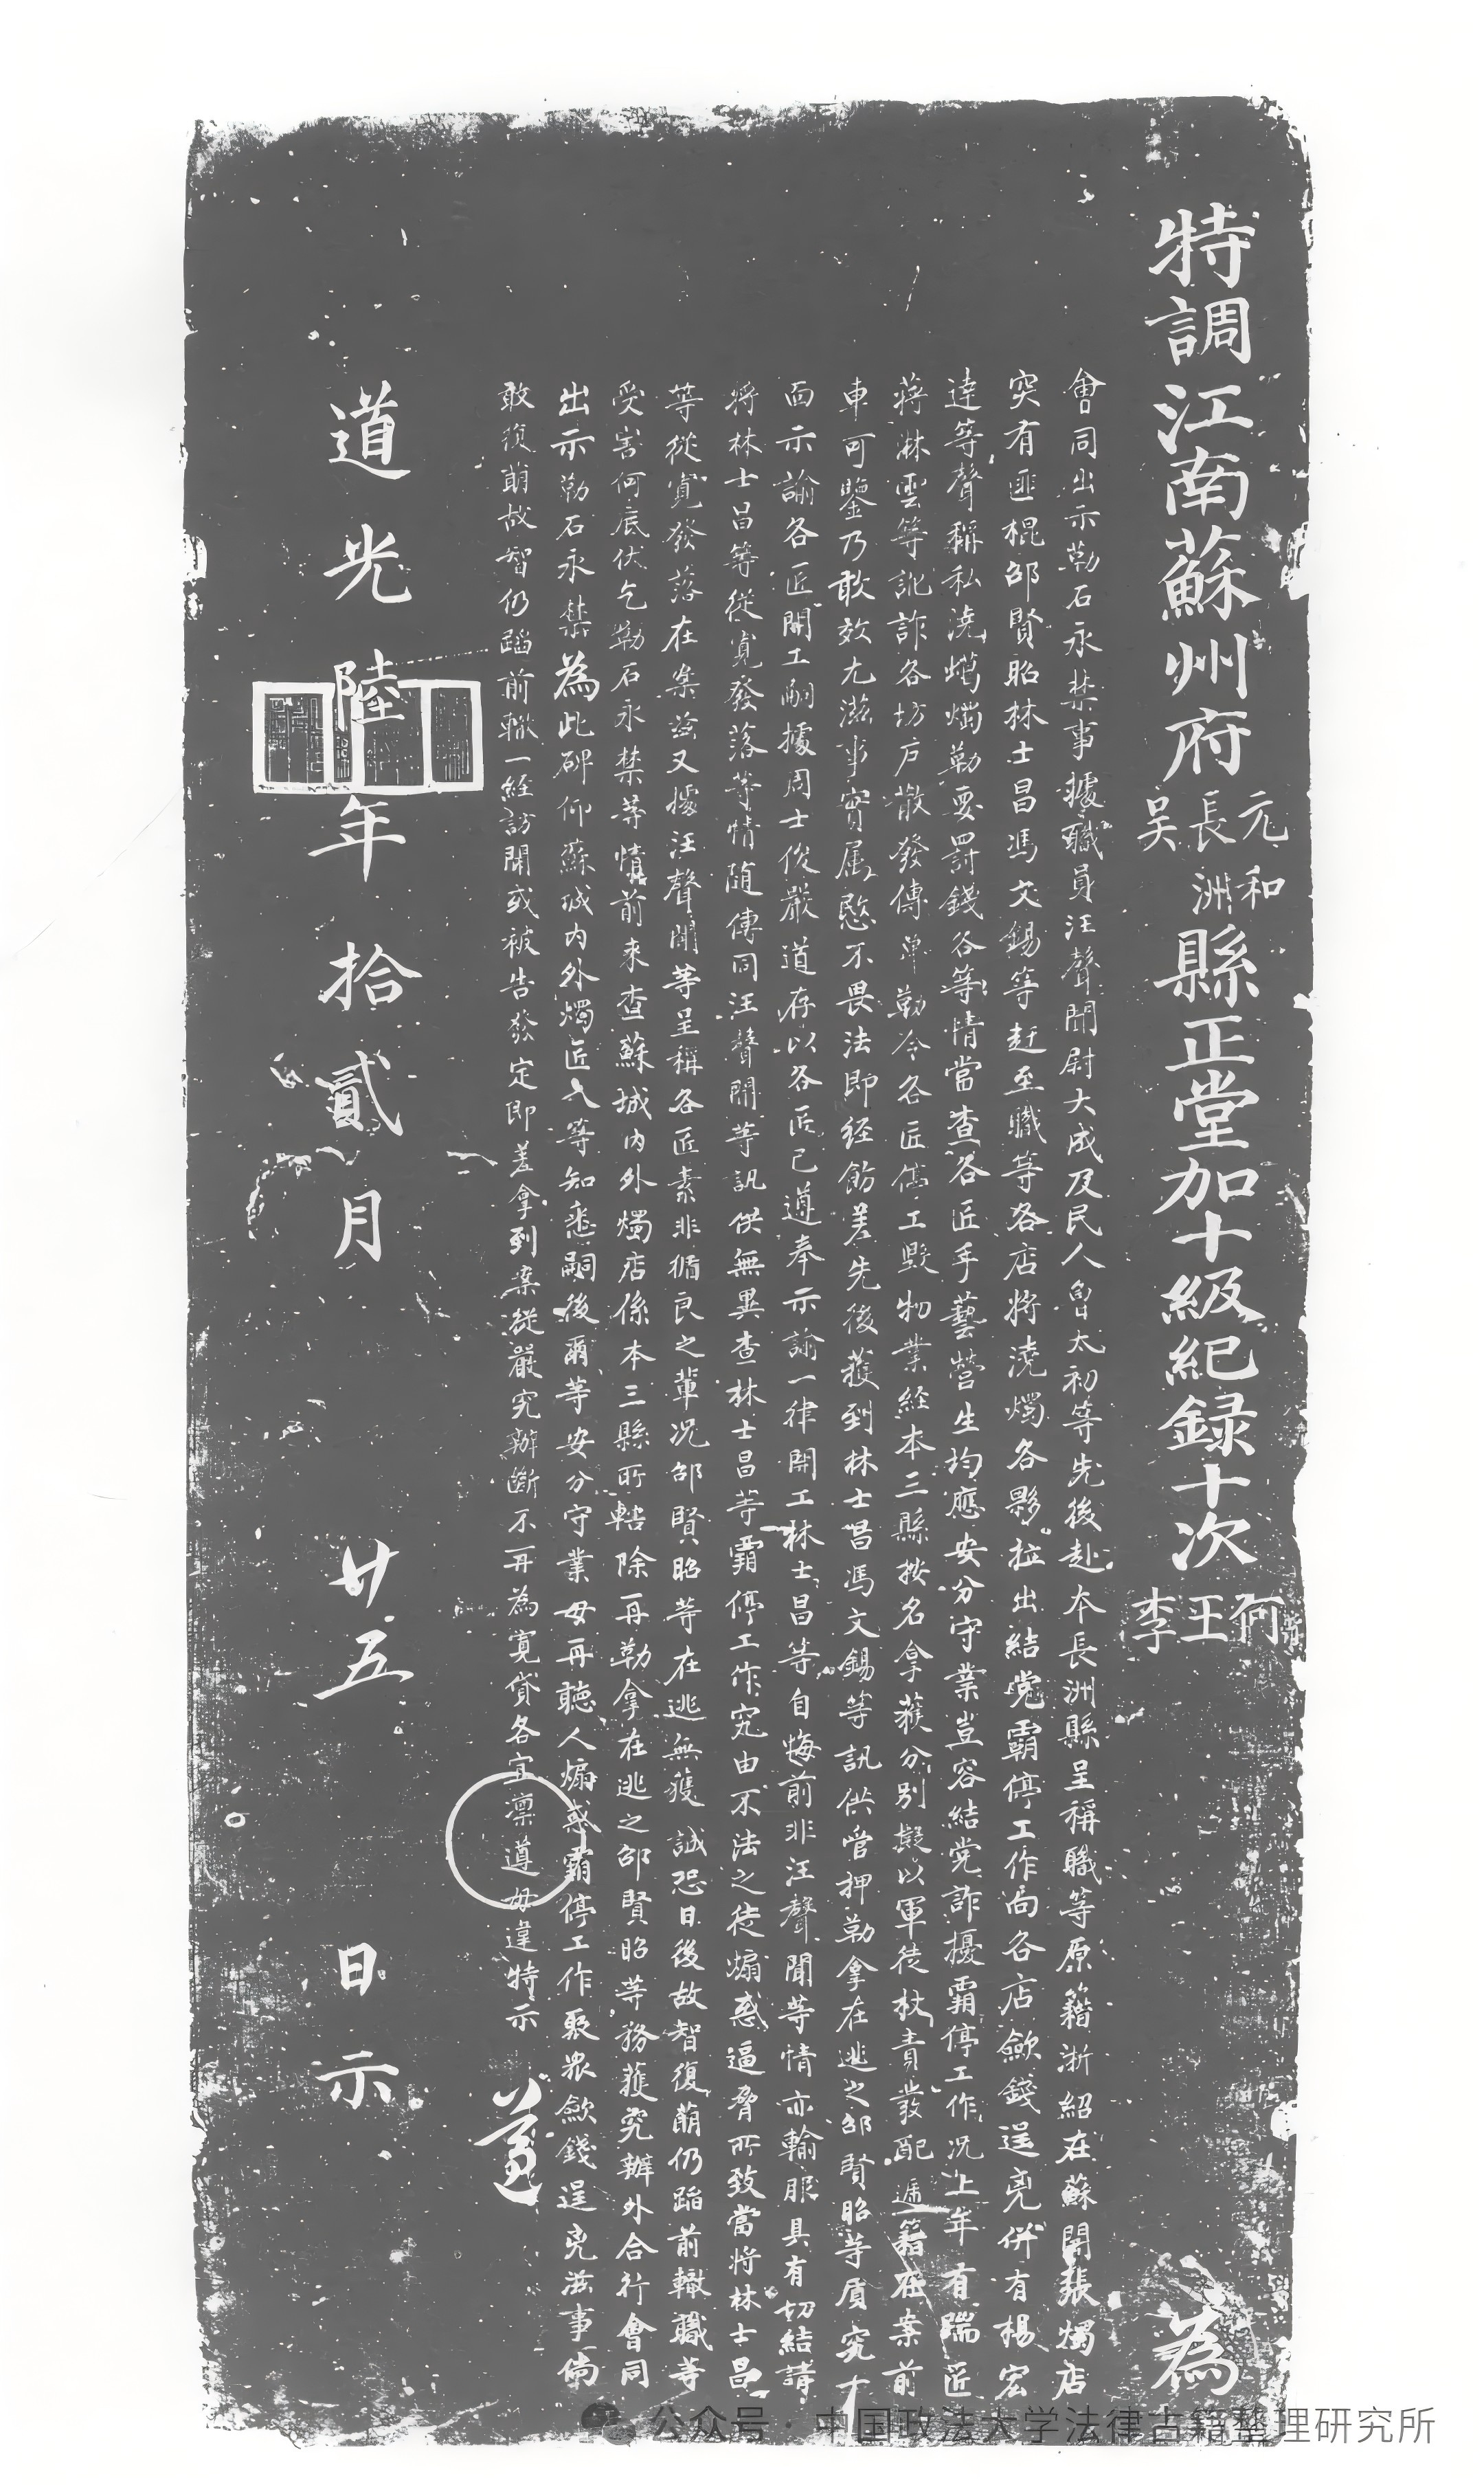 特調江南蘇州府元和長洲吳縣正堂加十級紀録十次何王李為
會同出示勒石永禁事據職員汪聲聞尉大成及民人魯太初等先後赴本長洲縣呈稱職等原籍浙紹在蘇開張燭店
突有匪棍邵賢昭林士昌馮文錫等赶至職等各店將澆燭各夥拉出結党霸停工作向各店歛錢逞兇併有楊宏
逵等聲稱私澆蠟燭勒要罰錢各等情當查各匠手藝營生均應安分守業豈容結党詐擾霸停工作况上年有踹匠
蔣淋雲等訛詐各坊戶散發傳单勒令各匠停工毀物業經本三縣按名拿獲分别擬以軍徒杖責發配遞籍在案前
車可鑒乃敢效尤滋事實属愍不畏法即経飭差先後獲到林士昌馮文錫等訊供管押勒拿在逃之邵賢昭等質究十
面示諭各匠開工嗣據周士俊嚴道存以各匠已遵奉示諭一律開工林士昌等自悔前非汪聲聞等情亦輸服具有切結請
將林士昌等從寛發落等情随傳同汪聲聞等訊供無異查林士昌等霸停工作究由不法之徒煽惑逼脅所致當將林士昌
等從寛發落在案兹又據汪聲聞等呈稱各匠素非循良之輩况邵賢昭等在逃無獲誠恐日後故智復萌仍蹈前轍職等
受害何底伏乞勒石永禁等情前来查蘇城内外燭店係本三縣所轄除再勒拿在逃之邵賢昭等務獲究辦外合行會同
出示勒石永禁為此碑仰蘇城内外燭匠人等知悉嗣後爾等安分守業毋再聽人煽惑霸停工作聚衆歛錢逞兇滋事倘
敢復萌故智仍蹈前轍一経訪聞或被告發定即差拿到案從嚴究辦断不再為寛貸各宜凜遵毋違特示
遵
道光陸年拾貳月廿五日示
公众号·中国政法大学法律古籍整理研究所